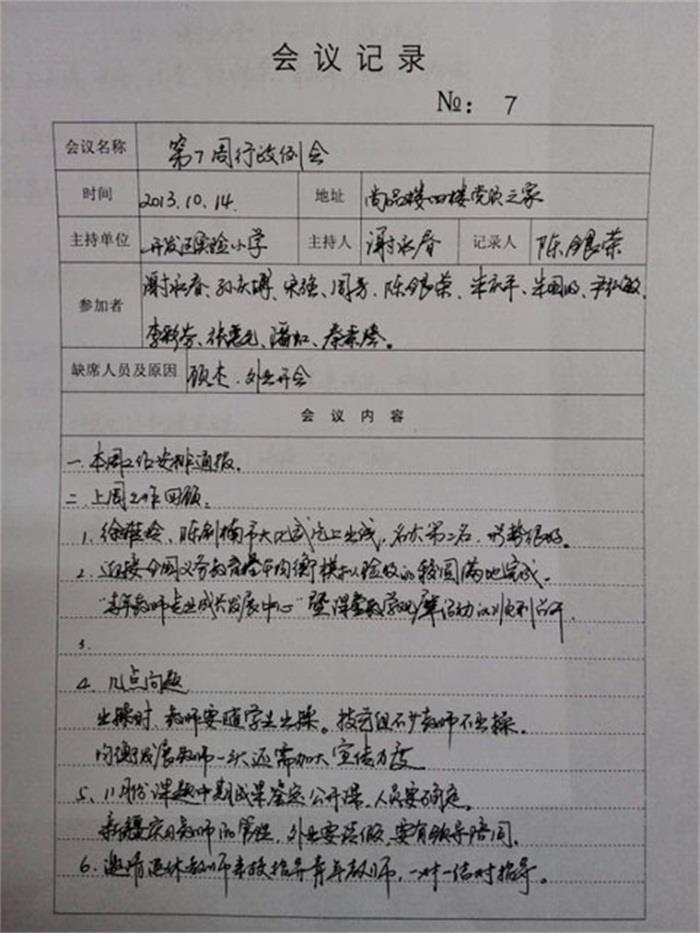 会议记录
№: 7
会议名称 第7周行政例会
时间 2013.10.14. 地址 尚品楼四楼党员之家
主持单位 开发区实验小学 主持人 谢永春 记录人 陈银荣
参加者 谢永春、孙、宋强、周芳、陈银荣、朱、朱国、
李彩芬、张、潘、秦素
缺席人员及原因 顾杰.外出开会
会议内容
一.本周工作安排通报。
二.上周工作回顾.
1. 徐、陈市大比武已上出线,名次第二名,形势很好。
2. 迎接全国义务教育基本均衡模拟验收的较圆满地完成.
“青年教师专业成长发展中心”暨课堂教学观摩活动的顺利召开.
3.
4. 几点问题
出操时,教师要随学生出操。技艺组不少教师不出操。
均衡发展教师一块还需加大宣传力度
5、11月份课题中期成果鉴定公开课.人员要确定。
新疆实习教师的管理,外出要请假,要有领导陪同.
6. 邀请退休教师来校指导青年教师,一对一结对指导。